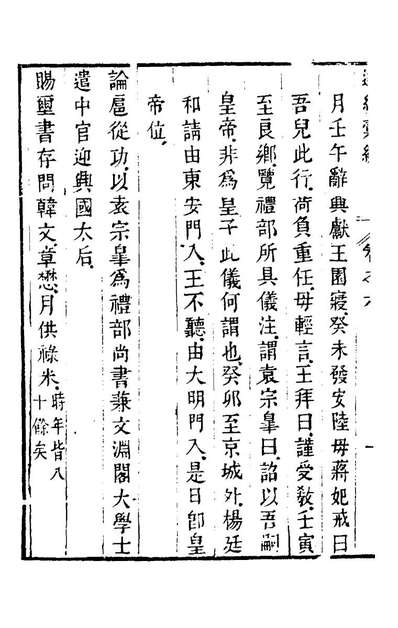 月壬午辭興獻王園寢癸未發安陸母蔣妃戒曰
吾兒此行荷負重任毋輕言王拜曰謹受敎壬寅
至良鄉覽禮部所具儀注謂袁宗皐曰詔以吾嗣
皇帝非為皇子此儀何謂也癸卯至京城外楊廷
和請由東安門入王不聽由大明門入是日卽皇
帝位
論扈從功以袁宗皐為禮部尚書兼文淵閣大學士
遣中官迎興國太后
賜璽書存問韓文章懋月供祿米時年皆八
十餘矣